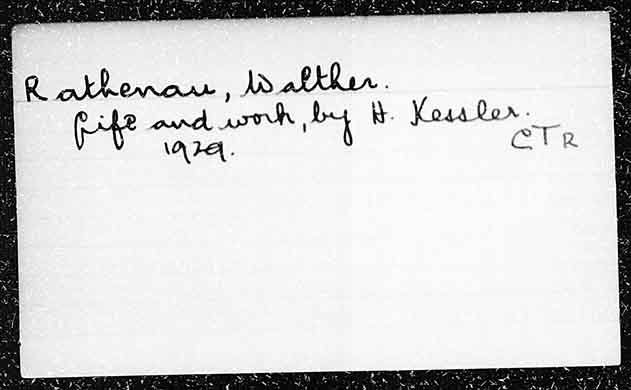 Rathenau, Walther.
Life and work, by H. Kessler.
1929.
CTR